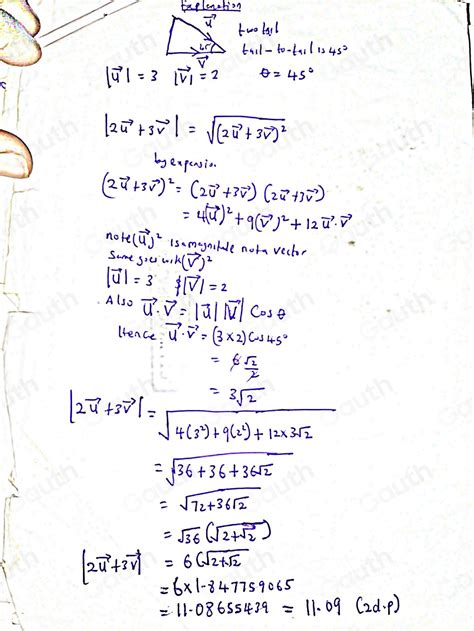 Explanation
u⃗
two tail
45°
tail-to-tail is 45°
v⃗
|u⃗| = 3 |v⃗| = 2 θ = 45°
|2u⃗+3v⃗| = √(2u⃗+3v⃗)²
by expansion
(2u⃗+3v⃗)² = (2u⃗+3v⃗)(2u⃗+3v⃗)
= 4(u⃗)² + 9(v⃗)² + 12u⃗·v⃗
note (u⃗)² is a magnitude not a vector
Same goes with (v⃗)²
|u⃗| = 3 $|v⃗| = 2
Also u⃗·v⃗ = |u⃗||v⃗| Cosθ
Hence u⃗·v⃗ = (3×2)Cos45°
= 6 √2/2
= 3√2
|2u⃗+3v⃗| = √4(3²)+9(2²)+12×3√2
= √36+36+36√2
= √72+36√2
= √36 (√2+√2)
|2u⃗+3v⃗| = 6(√2+√2
= 6×1.847759065
= 11.08655439 = 11.09 (2d.p)